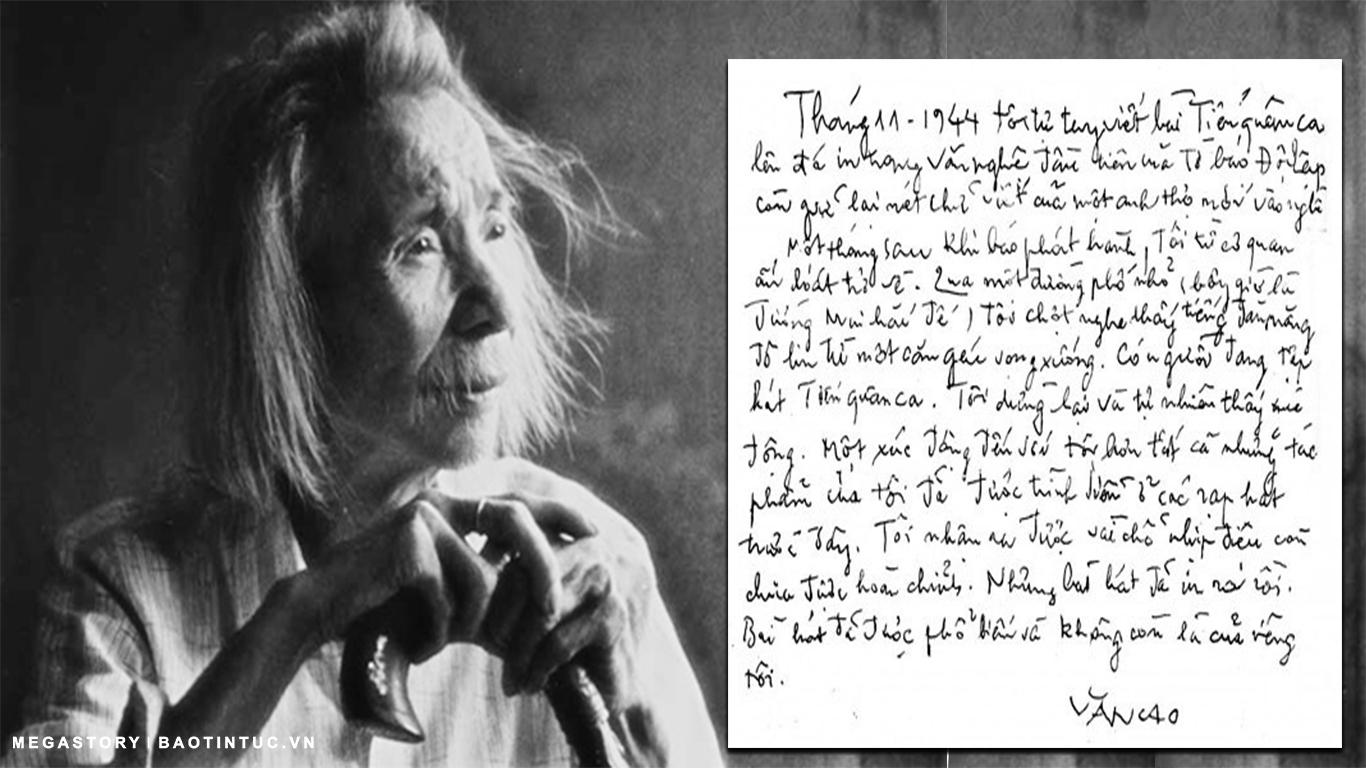 Tháng 11 - 1944 tôi tự tay viết bài Tiến quân ca
lên đá in trang Văn nghệ đầu tiên mà tờ báo Độc lập
còn giữ lại nét chữ viết của một anh thợ mới vào nghề
Một tháng sau khi báo phát hành, Tôi từ cơ quan
ấn loát trở về. Qua một đường phố nhỏ (bây giờ là
Đường Mai hắc Đế) Tôi chợt nghe thấy tiếng đàn măng
đô lin từ một căn gác vọng xuống. Có người đang tập
hát Tiến quân ca. Tôi dừng lại và tự nhiên thấy xúc
động. Một xúc động đến với tôi hơn tất cả những tác
phẩm của tôi đã được trình diễn ở các rạp hát
trước đây. Tôi nhận ra được vài chỗ nhịp điệu còn
chưa được hoàn chỉnh. Nhưng bài hát đã in ra rồi.
Bài hát đã được phổ biến và không còn là của riêng
tôi.
VĂN CAO
MEGASTORY | BAOTINTUC.VN